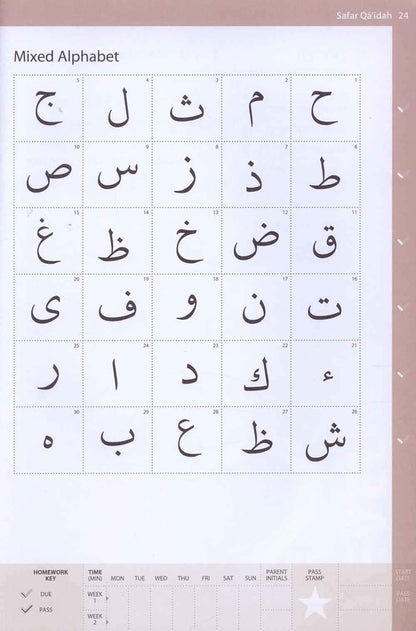 Safar Qā'idah 24
Mixed Alphabet
1 2 3 4 5
ح م ث ل ج
6 7 8 9 10
ط ذ ز س ص
11 12 13 14 15
ق ض خ ظ غ
16 17 18 19 20
ت ن و ف ى
21 22 23 24 25
ء ك د ا ر
26 27 28 29 30
ش ظ ع ب ه
HOMEWORK KEY
DUE
PASS
TIME (MIN) MON TUE WED THU FRI SAT SUN
WEEK 1
WEEK 2
PARENT INITIALS
PASS STAMP
START DATE
PASS DATE